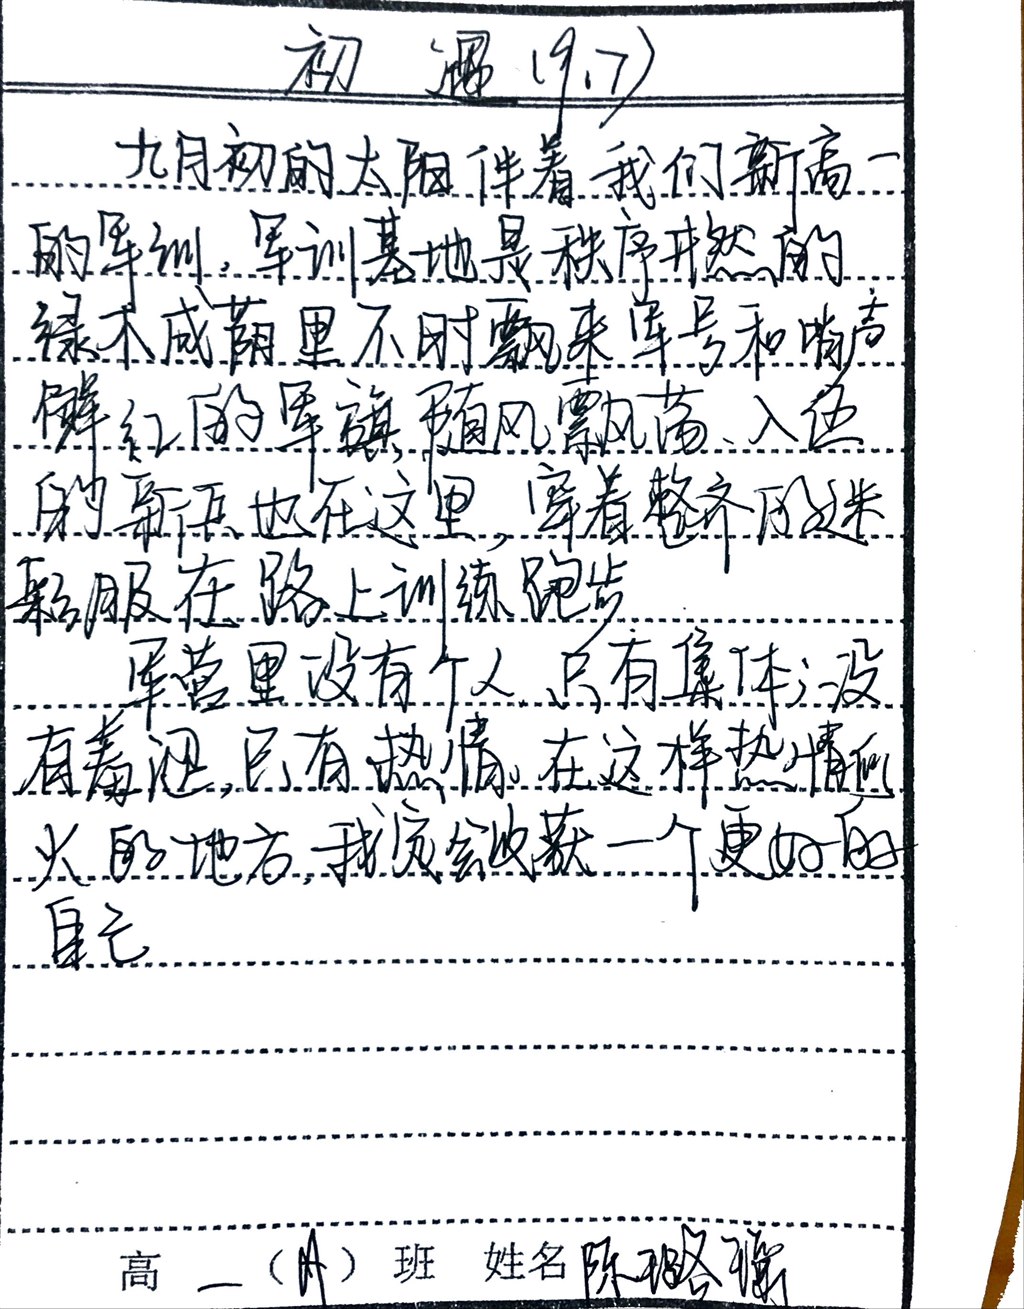 初遇(9.7)
九月初的太阳伴着我们新高一
的军训,军训基地是秩序井然的
绿木成荫里不时飘来军号和哨声
鲜红的军旗随风飘荡、入伍
的新兵也在这里,穿着整齐的迷
彩服在路上训练跑步
军营里没有个人,只有集体;没
有羞涩,只有热情。在这样热情似
火的地方,我会收获一个更好的
自己
高一(A)班 姓名陈璐